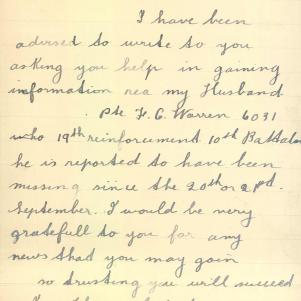 I have been
advised to write to you
asking you help in gaining
information rea my Husband
Pte F. C. Warren 6031
who 19th reinforcement 10th Battalon
he is reported to have been
missing since the 20th or 22nd.
September. I would be very
gratefull to you for any
news that you may gain
so trusting you will succeed